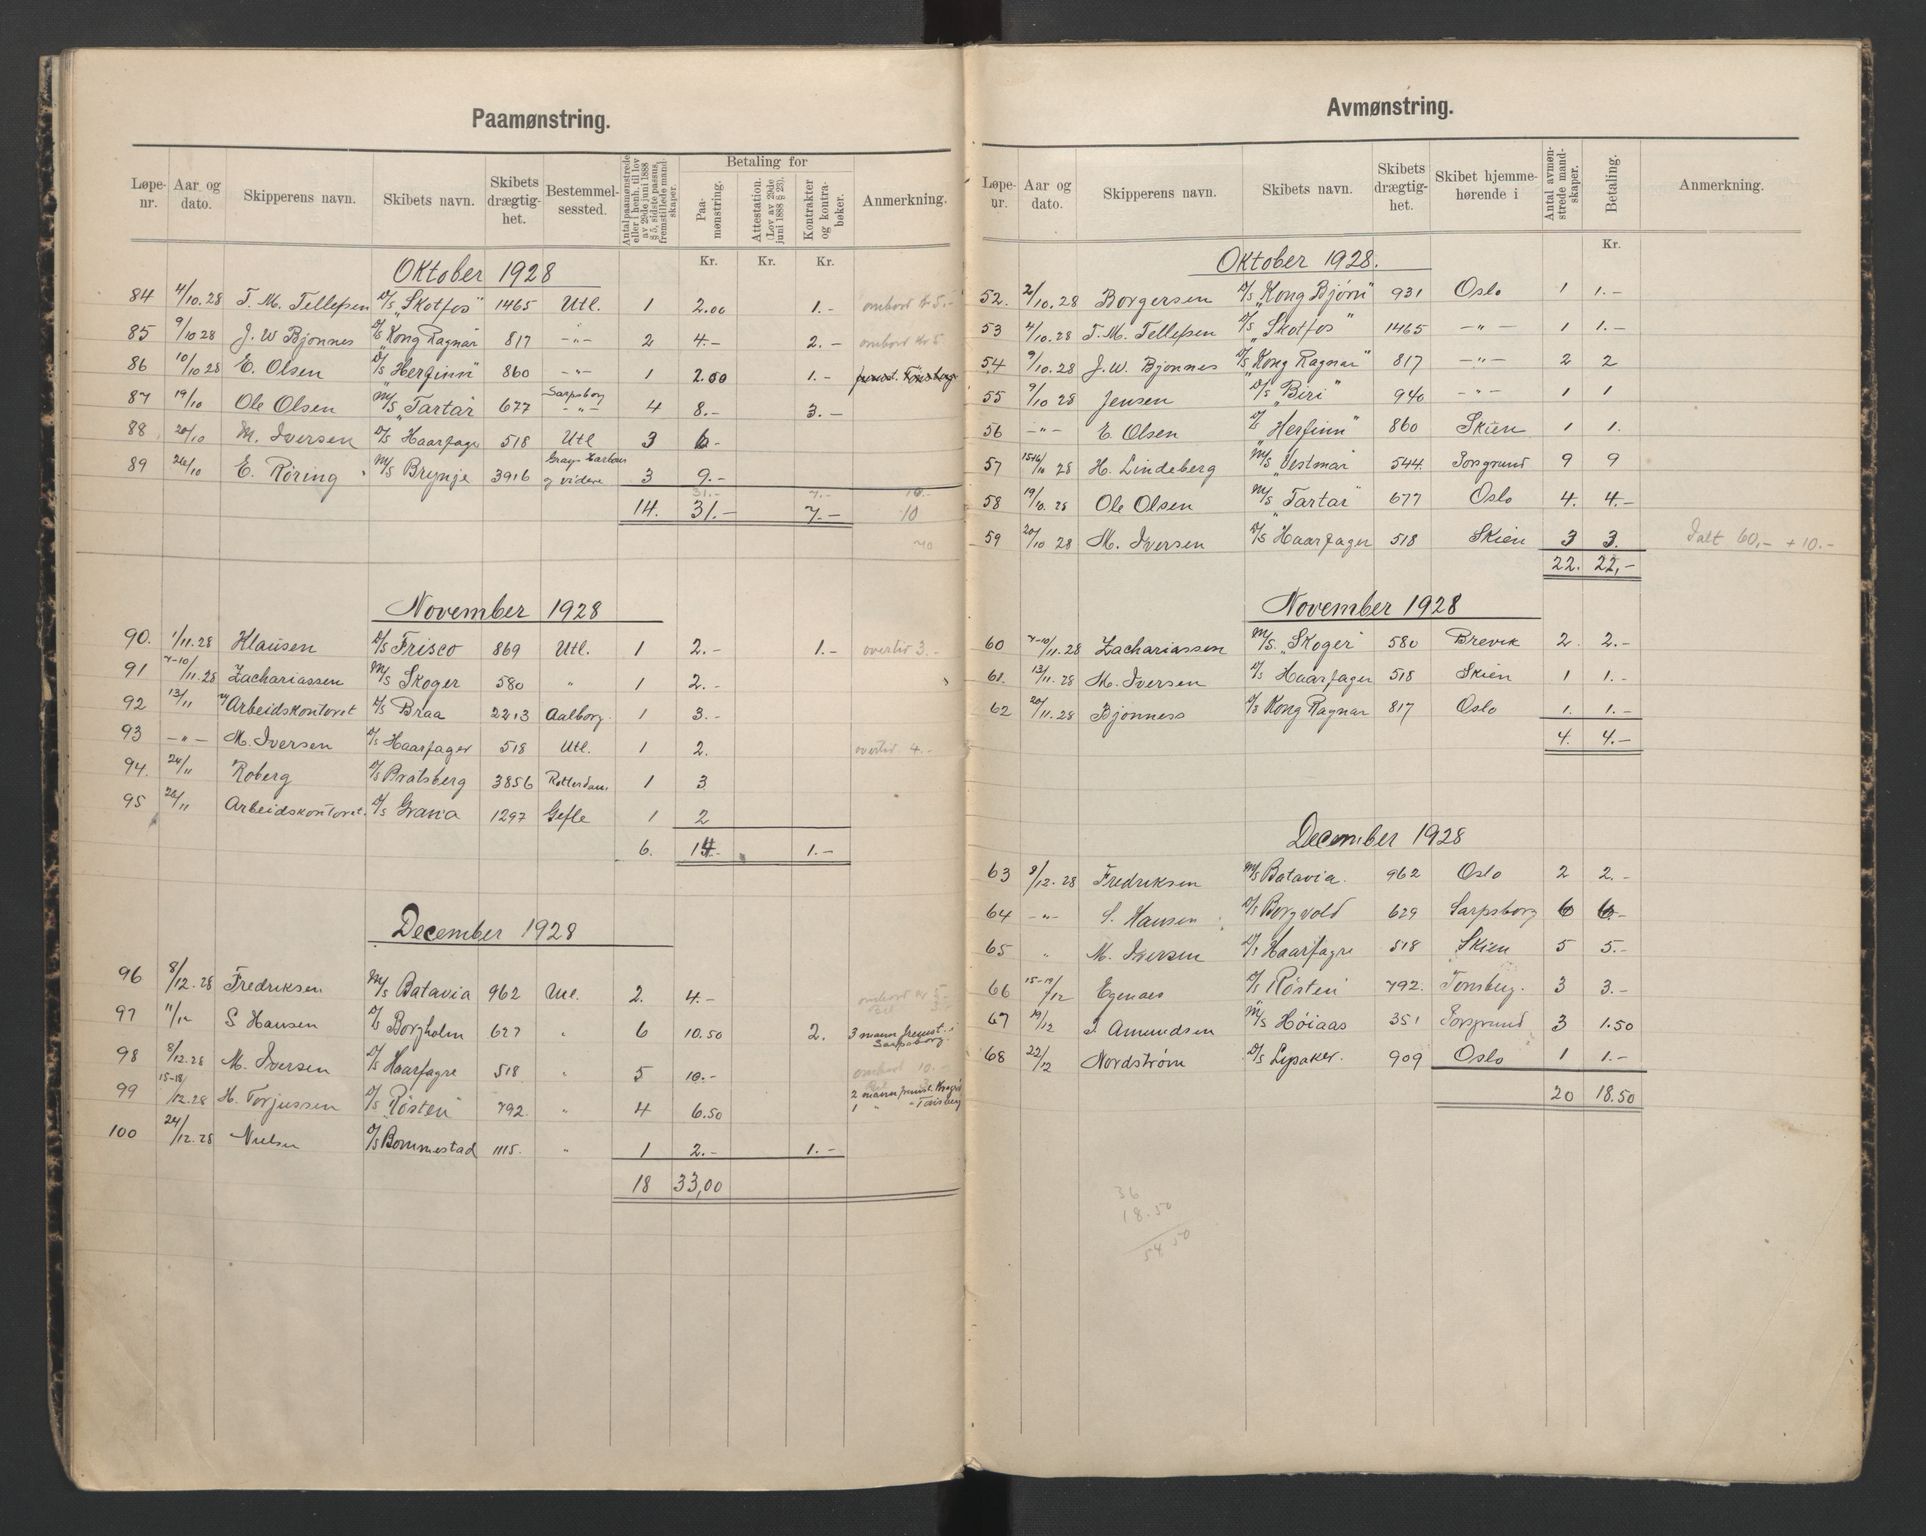 Paamønstring.
Løpe-nr. | Aar og dato. | Skipperens navn. | Skibets navn. | Skibets drægtig-het. | Bestemmel-sessted. | Antal paamønstrede eller i henh. til lov av 29de juni 1888 § 5, sidste passus, fremstillede mand-skaper. | Betaling for | Paa-mønstring. | Attestation. (Lov av 29de juni 1888 § 23). | Kontrakter og kontra-bøker. | Anmerkning.
Kr. Kr. Kr.
Oktober 1928
84 4/10.28 T. M. Tellefsen D/S "Skotfos" 1465 Utl. 1 2.00 1.- ombord Kr 5.-
85 9/10 28 J. W Bjønnes D/S Kong Ragnar 817 -"- 2 4.- 2.- ombord Kr 5.
86 10/10 28 E. Olsen D/S "Herfinn" 860 -"- 1 2.00 1.- fremst. Tønsberg
87 19/10 Ole Olsen M/S "Tartar" 677 Sarpsborg -"- 4 8.- 3.-
88 20/10 M. Iversen D/S Haarfagre 518 Utl 3 6.-
89 26/10 E. Røring M/S Brynje 3916 Grays Harbour og videre 3 9.-
31.- 7.- 10.-
14. 31.- 7.- 10
November 1928
90. 1/11.28 Klausen D/S Frisco 869 Utl. 1 2.- 1.- overtid 3.-
91 7-10/11.28 Zachariassen M/S Skoger 580 " 1 2.-
92 13/11 v/Arbeidskontoret D/S Braa 2213 Aalborg. 1 3.-
93 -"- M. Iversen D/S Haarfager 518 Utl. 1 2. overtid 4.-
94. 24/11 Roberg D/S Bratsberg 3856 Rotterdam 1 3
95 26/11 Arbeidskontoret. D/S Grana 1297 Gefle 1 2
6. 14.- 1.-
December 1928
96 8/12.28 Fredriksen M/S Batavia 962 Utl. 2. 4.- ombord kr 5.
97 11/12 S Hansen D/S Borgholm 627 " 6 10.50 2. 3 mann fremst. i Sarpsborg.
98 8/12.28 M. Iversen D/S Haarfagre 518 " 5 10.- ombord 10.-
99 15-18/12.28 H. Torjussen D/S "Røsten" 792. " 4 6.50 2 mann fremst. Kragrø
1 " "
100 24/12.28 Nielsen D/S Bommestad 1115. " 1 2.- 1.-
18 33,00
Avmønstring.
Løpe-nr. | Aar og dato. | Skipperens navn. | Skibets navn. | Skibets drægtig-het. | Skibet hjemme-hørende i | Antal avmøn-strede mand-skaper. | Betaling. | Anmerkning.
Kr.
Oktober 1928.
52. 2/10.28 Borgersen D/S "Kong Bjørn" 931 Oslo 1 1.-
53 4/10.28 T. M. Tellefsen D/S "Skotfos" 1465 -"- 1 1.-
54 9/10.28 J. W. Bjønnes D/S "Kong Ragnar" 817 -"- 2 2
55 9/10 28 Jensen D/S "Biri" 940 -"- 1 1
56 -"- E. Olsen D/S "Herfinn" 860 Skien 1 1.
57 15-16/10 28 H. Lindeberg M/S "Vestmar" 544. Porsgrund 9 9
58 19/10.28 Ole Olsen M/S "Tartar" 677 Oslo 4. 4.-
59 20/10 28 M. Iversen D/S Haarfager 518 Skien 3 3. Ialt 60,- + 10.-
22. 22,-
November 1928
60 7-10/11.28 Zachariassen M/S. "Skoger" 580 Brevik 2. 2.-
61. 13/11.28 M. Iversen D/S Haarfager 518 Skien 1 1.-
62 20/11.28 Bjønness D/S Kong Ragnar 817 Oslo 1. 1.-
4. 4.-
December 1928
63 8/12.28 Fredriksen M/S Batavia. 962 Oslo 2 2.-
64 -"- S. Hansen D/S Borgvold 629 Sarpsborg 6 6.-
65 " M. Iversen D/S Haarfagre 518 Skien 5 5.-
66 15-19/12 Egenæs D/S Røsten 792. Tønsberg. 3 3.-
67 19/12 J. Amundsen M/S Høiaas 351 Porsgrund 3 1.50
68 22/12 Nordstrøm D/S Lysaker. 909 Oslo 1 1.-
20 18.50
36
18.50
54 50